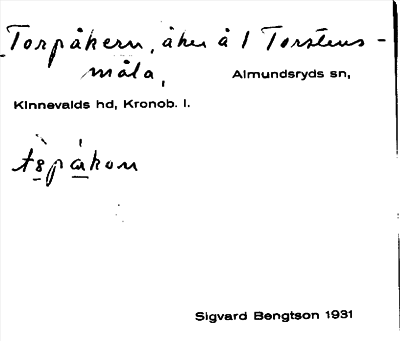 Torpåkern, åker å 1 Torstens-
måla, Almundsryds sn,
Kinnevalds hd, Kronob. l.
Sigvard Bengtson 1931